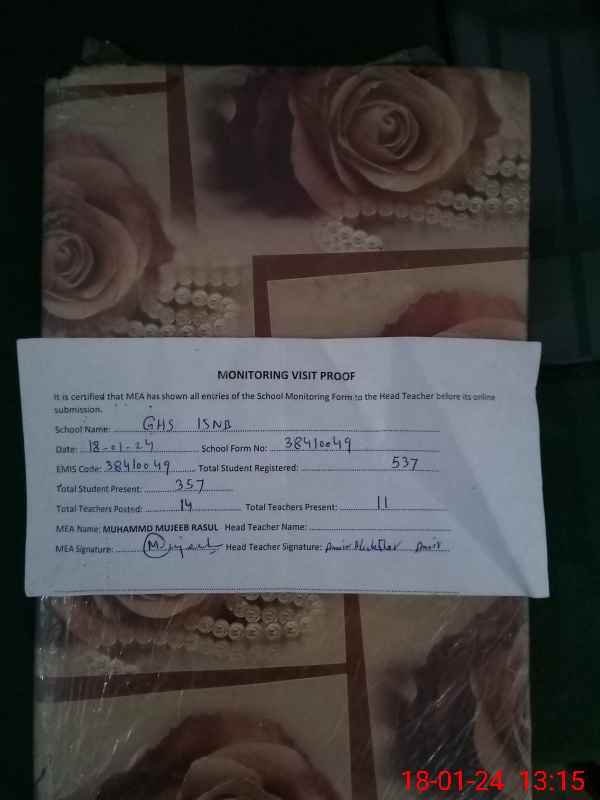 MONITORING VISIT PROOF
It is certified that MEA has shown all entries of the School Monitoring Form to the Head Teacher before its online
submission.
School Name: GHS 15NB
Date: 18-01-24 School Form No: 38410049
EMIS Code: 38410049 Total Student Registered: 537
Total Student Present: 357
Total Teachers Postnd: 14 Total Teachers Present: 11
MEA Name: MUHAMMD MUJEEB RASUL Head Teacher Name:
MEA Signature: Mujeeb Head Teacher Signature:
18-01-24 13:15